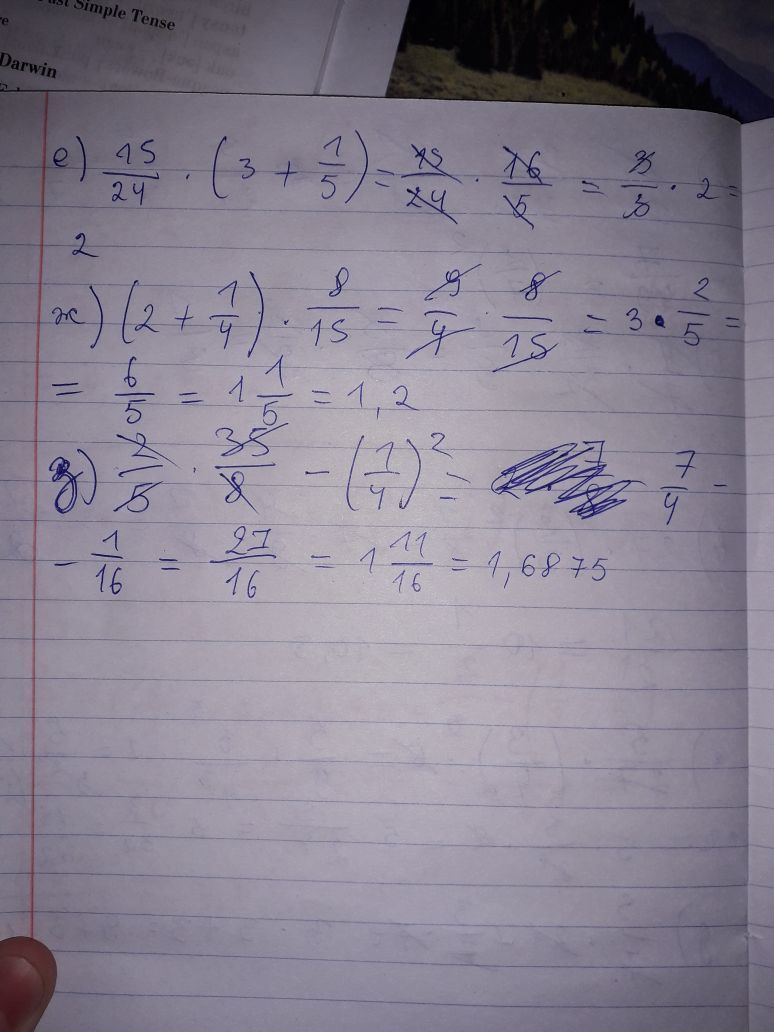 ast Simple Tense
re
Darwin
е) 15/24 · (3 + 1/5) = 15/24 · 16/5 = 3/3 · 2 =
2
ж) (2 + 1/4) · 8/15 = 9/4 · 8/15 = 3 · 2/5 =
= 6/5 = 1 1/5 = 1,2
з) 2/5 · 35/8 - (1/4)² = 7/4 -
- 1/16 = 27/16 = 1 11/16 = 1,6875